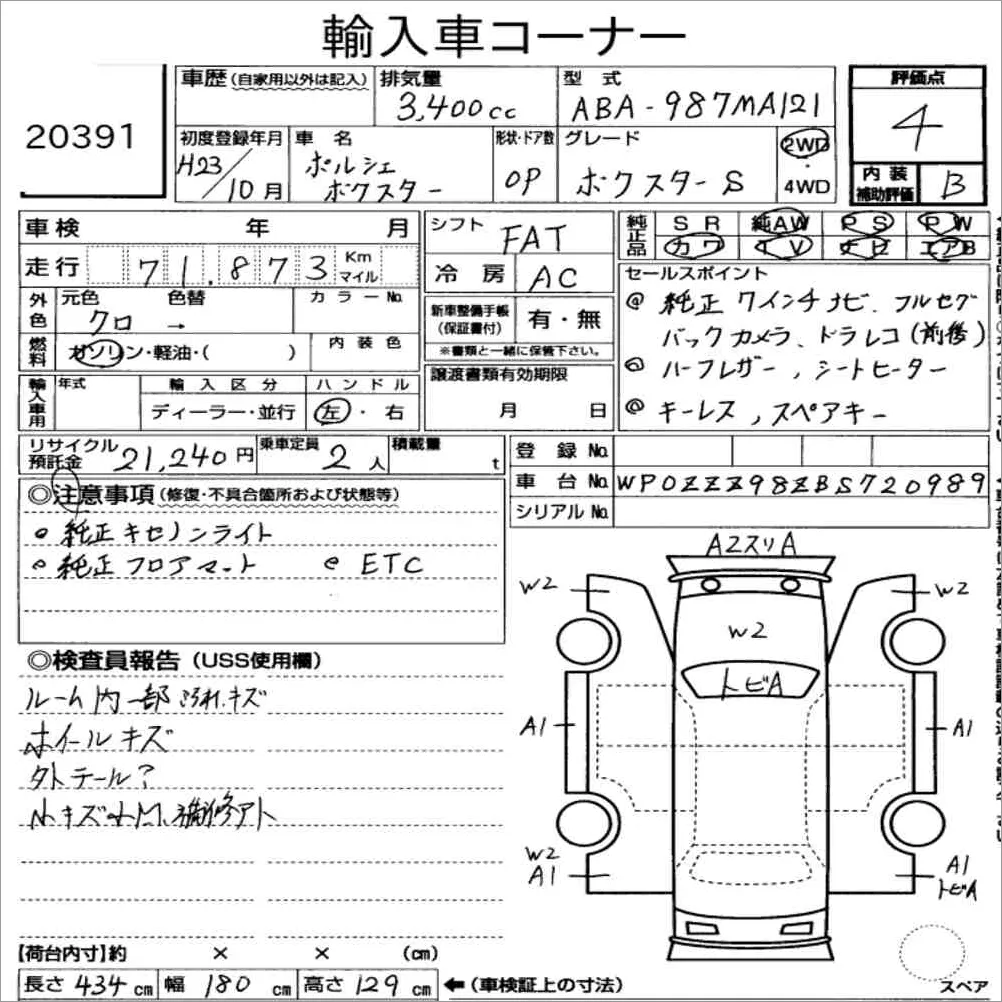 輸入車コーナー
20391
車歴(自家用以外は記入)
排気量
3,400cc
型式
ABA-987MA121
評価点
4
初度登録年月
H23/10月
車名
ポルシェ
ボクスター
形状・ドア数
OP
グレード
ボクスターS
2WD
・
4WD
内装
補助評価
B
車検 年 月
シフト
FAT
純正品
SR 純AW PS PW
カワ TV ナビ エアB
走行 71.873 Km
マイル
冷房 AC
セールスポイント
◎ 純正 7インチナビ、フルセグ
バックカメラ、ドラレコ(前後)
◎ ハーフレザー、シートヒーター
◎ キーレス、スペアキー
外色
元色 色替 カラーNo.
クロ →
新車整備手帳
(保証書付)
有・無
※書類と一緒に保管下さい。
燃料
ガソリン・軽油・( )
内装色
輸入車用
年式
輸入区分
ディーラー・並行
ハンドル
左・右
譲渡書類有効期限
月 日
リサイクル
預託金
21,240円
乗車定員
2人
積載量
t
登録No.
車台No. WP0ZZZ98ZBS720989
シリアルNo.
◎注意事項(修復・不具合箇所および状態等)
◦ 純正キセノンライト
◦ 純正フロアマット ◦ ETC
◎検査員報告(USS使用欄)
ルーム内一部汚れ、キズ
ホイールキズ
外テール?
小キズ小凹、補修アト
A2スリA
W2
W2
W2
トビA
A1
A1
W2
A1
A1
トビA
【荷台内寸】約 × × (cm)
長さ 434 cm 幅 180 cm 高さ 129 cm ←(車検証上の寸法)
スペア